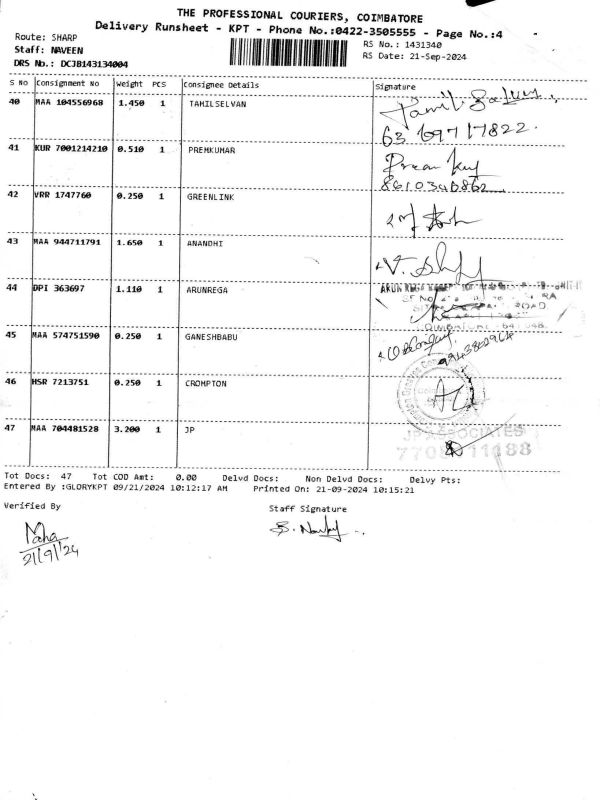 THE PROFESSIONAL COURIERS, COIMBATORE
Delivery Runsheet - KPT - Phone No.:0422-3505555 - Page No.:4
Route: SHARP
Staff: NAVEEN
DRS No.: DCJB143134004
RS No.: 1431340
RS Date: 21-Sep-2024
S No Consignment No Weight PCS Consignee Details Signature
40 MAA 104556968 1.450 1 TAMILSELVAN
41 KUR 7001214210 0.510 1 PREMKUMAR
8610340862
42 VRR 1747760 0.250 1 GREENLINK
43 MAA 944711791 1.650 1 ANANDHI
44 DPI 363697 1.110 1 ARUNREGA
45 MAA 574751590 0.250 1 GANESHBABU
46 HSR 7213751 0.250 1 CROMPTON
47 MAA 704481528 3.200 1 JP
JP ASSOCIATES
Tot Docs: 47 Tot COD Amt: 0.00 Delvd Docs: Non Delvd Docs: Delvy Pts:
Entered By :GLORYKPT 09/21/2024 10:12:17 AM Printed On: 21-09-2024 10:15:21
Verified By
Staff Signature
Maha
21/9/24